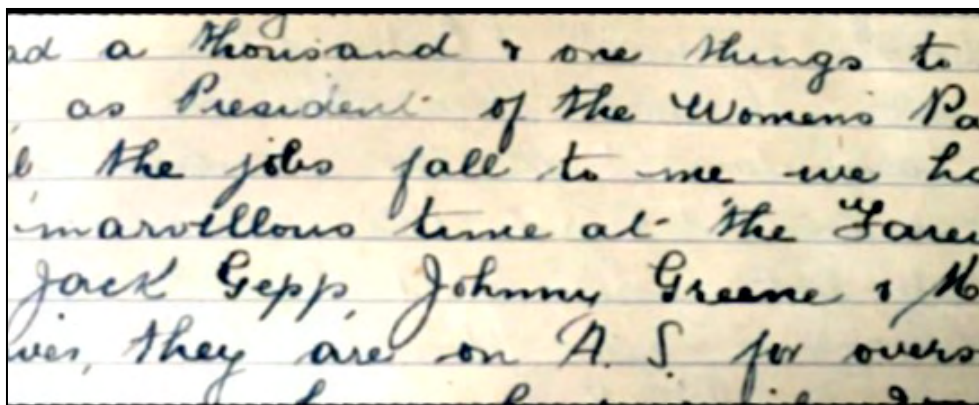 ad a thousand & one things to
as President of the Womens Pa
the jobs fall to me we ha
marvellous time at the Farew
Jack Gepp, Johnny Greene & M
ves, they are on A. S. for overs